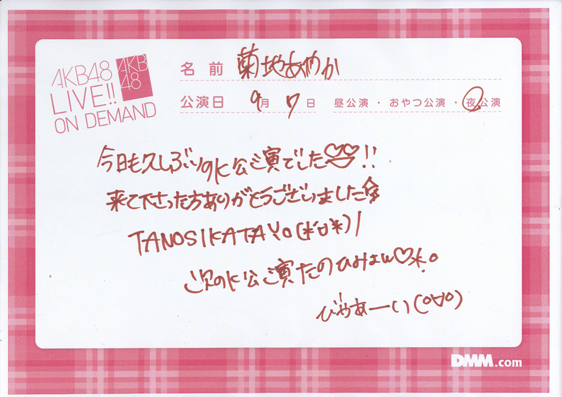 AKB48
LIVE!!
ON DEMAND
AKB
48
名前 菊地あやか
公演日 9月7日 昼公演・おやつ公演・夜公演
今日も久しぶりのK公演でした♡♡!!
来て下さった方ありがとうございました
TANOSIKATAYO(*'▽'*)/
次のK公演たのしみ♡
びゃあーい(°∀°)
DMM.com